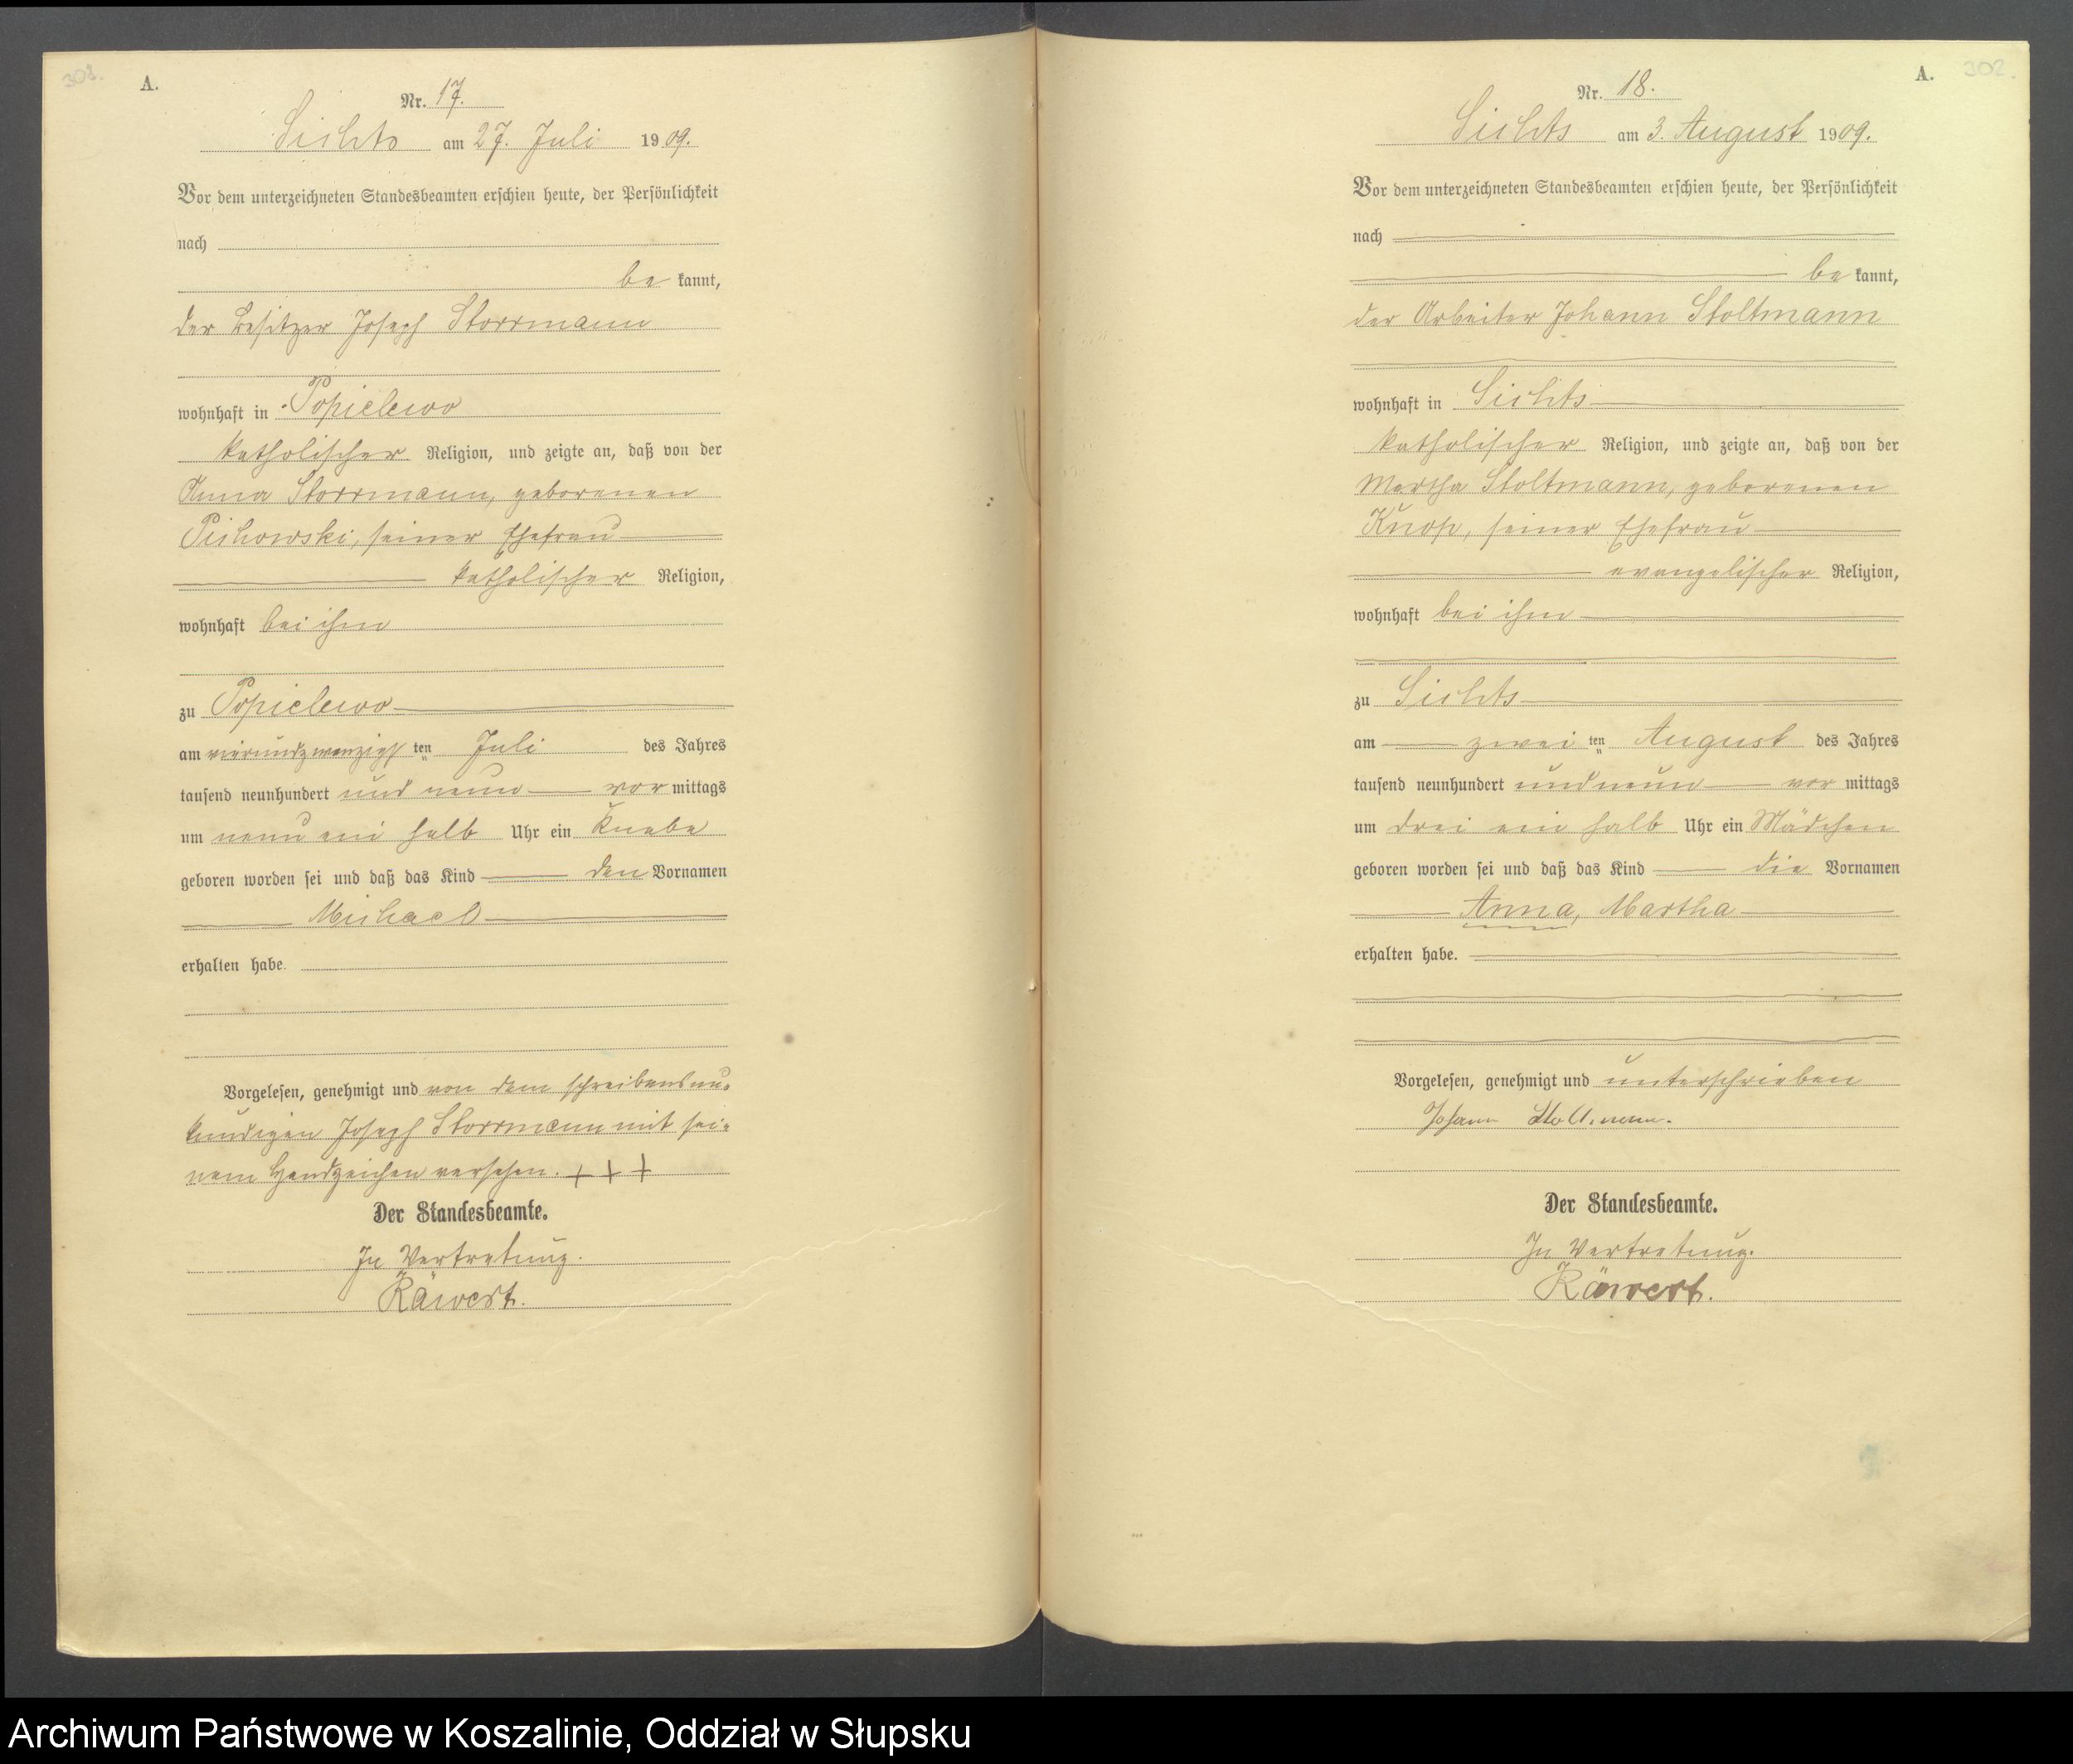 308.
A.
Nr. 17.
Lichts am 27. Juli 1909.
Vor dem unterzeichneten Standesbeamten erschien heute, der Persönlichkeit
nach
be kannt,
der Besitzer Joseph Storrmann
wohnhaft in Popielewo
katholischer Religion, und zeigte an, daß von der
Anna Storrmann, geborenen
Pichowski, seiner Ehefrau
katholischer Religion,
wohnhaft bei ihm
zu Popielewo
am vierundzwanzigsten Juli des Jahres
tausend neunhundert und neun vormittags
um neun ein halb Uhr ein Knabe
geboren worden sei und daß das Kind den Vornamen
Michael
erhalten habe.
Vorgelesen, genehmigt und von dem schreibensun-
kundigen Joseph Storrmann mit sei-
nem Handzeichen versehen. + + +
Der Standesbeamte.
In Vertretung.
Räwert.
A.
302.
Nr. 18.
Lichts am 3. August 1909.
Vor dem unterzeichneten Standesbeamten erschien heute, der Persönlichkeit
nach
be kannt,
der Arbeiter Johann Stoltmann
wohnhaft in Lichts
katholischer Religion, und zeigte an, daß von der
Martha Stoltmann, geborenen
Knop, seiner Ehefrau
evangelischer Religion,
wohnhaft bei ihm
zu Lichts
am zweiten August des Jahres
tausend neunhundert und neun vormittags
um drei ein halb Uhr ein Mädchen
geboren worden sei und daß das Kind die Vornamen
Anna, Martha
erhalten habe.
Vorgelesen, genehmigt und unterschrieben
Johann Stoltmann.
Der Standesbeamte.
In Vertretung.
Räwert.
Archiwum Państwowe w Koszalinie, Oddział w Słupsku